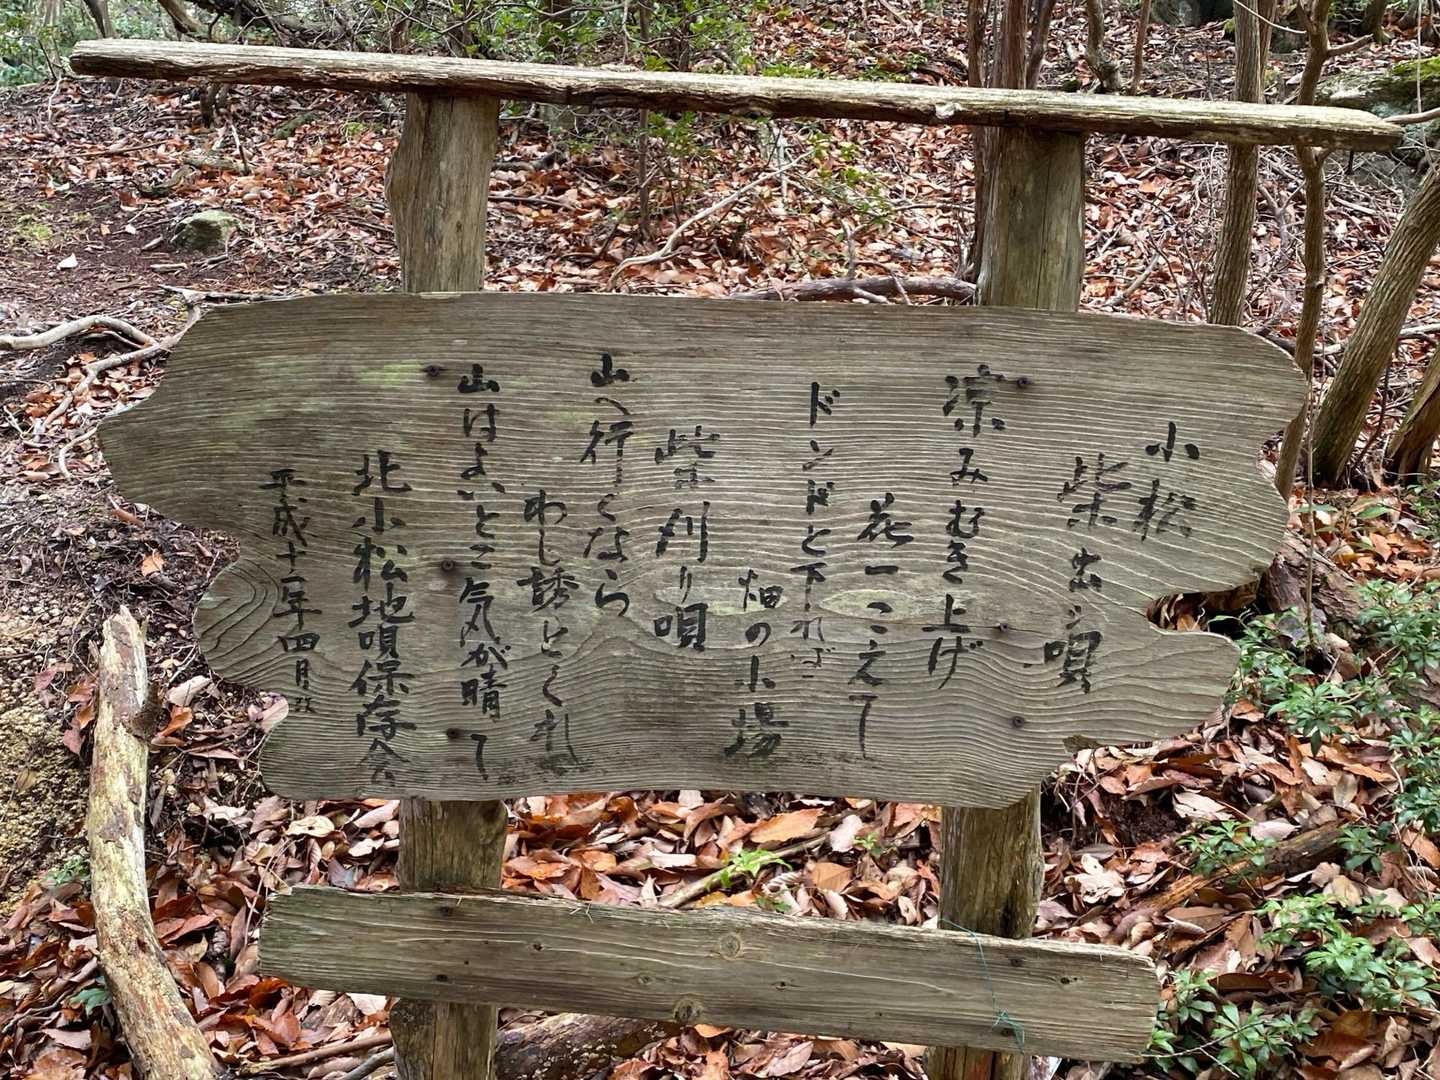 小松
柴出シ唄
涼みむき上げ
花一つこえて
ドンドと下れば
畑の小場
柴刈り唄
山へ行くなら
わし誘とくれ
山はよいとこ気が晴て
北小松地唄保存会
平成十一年四月